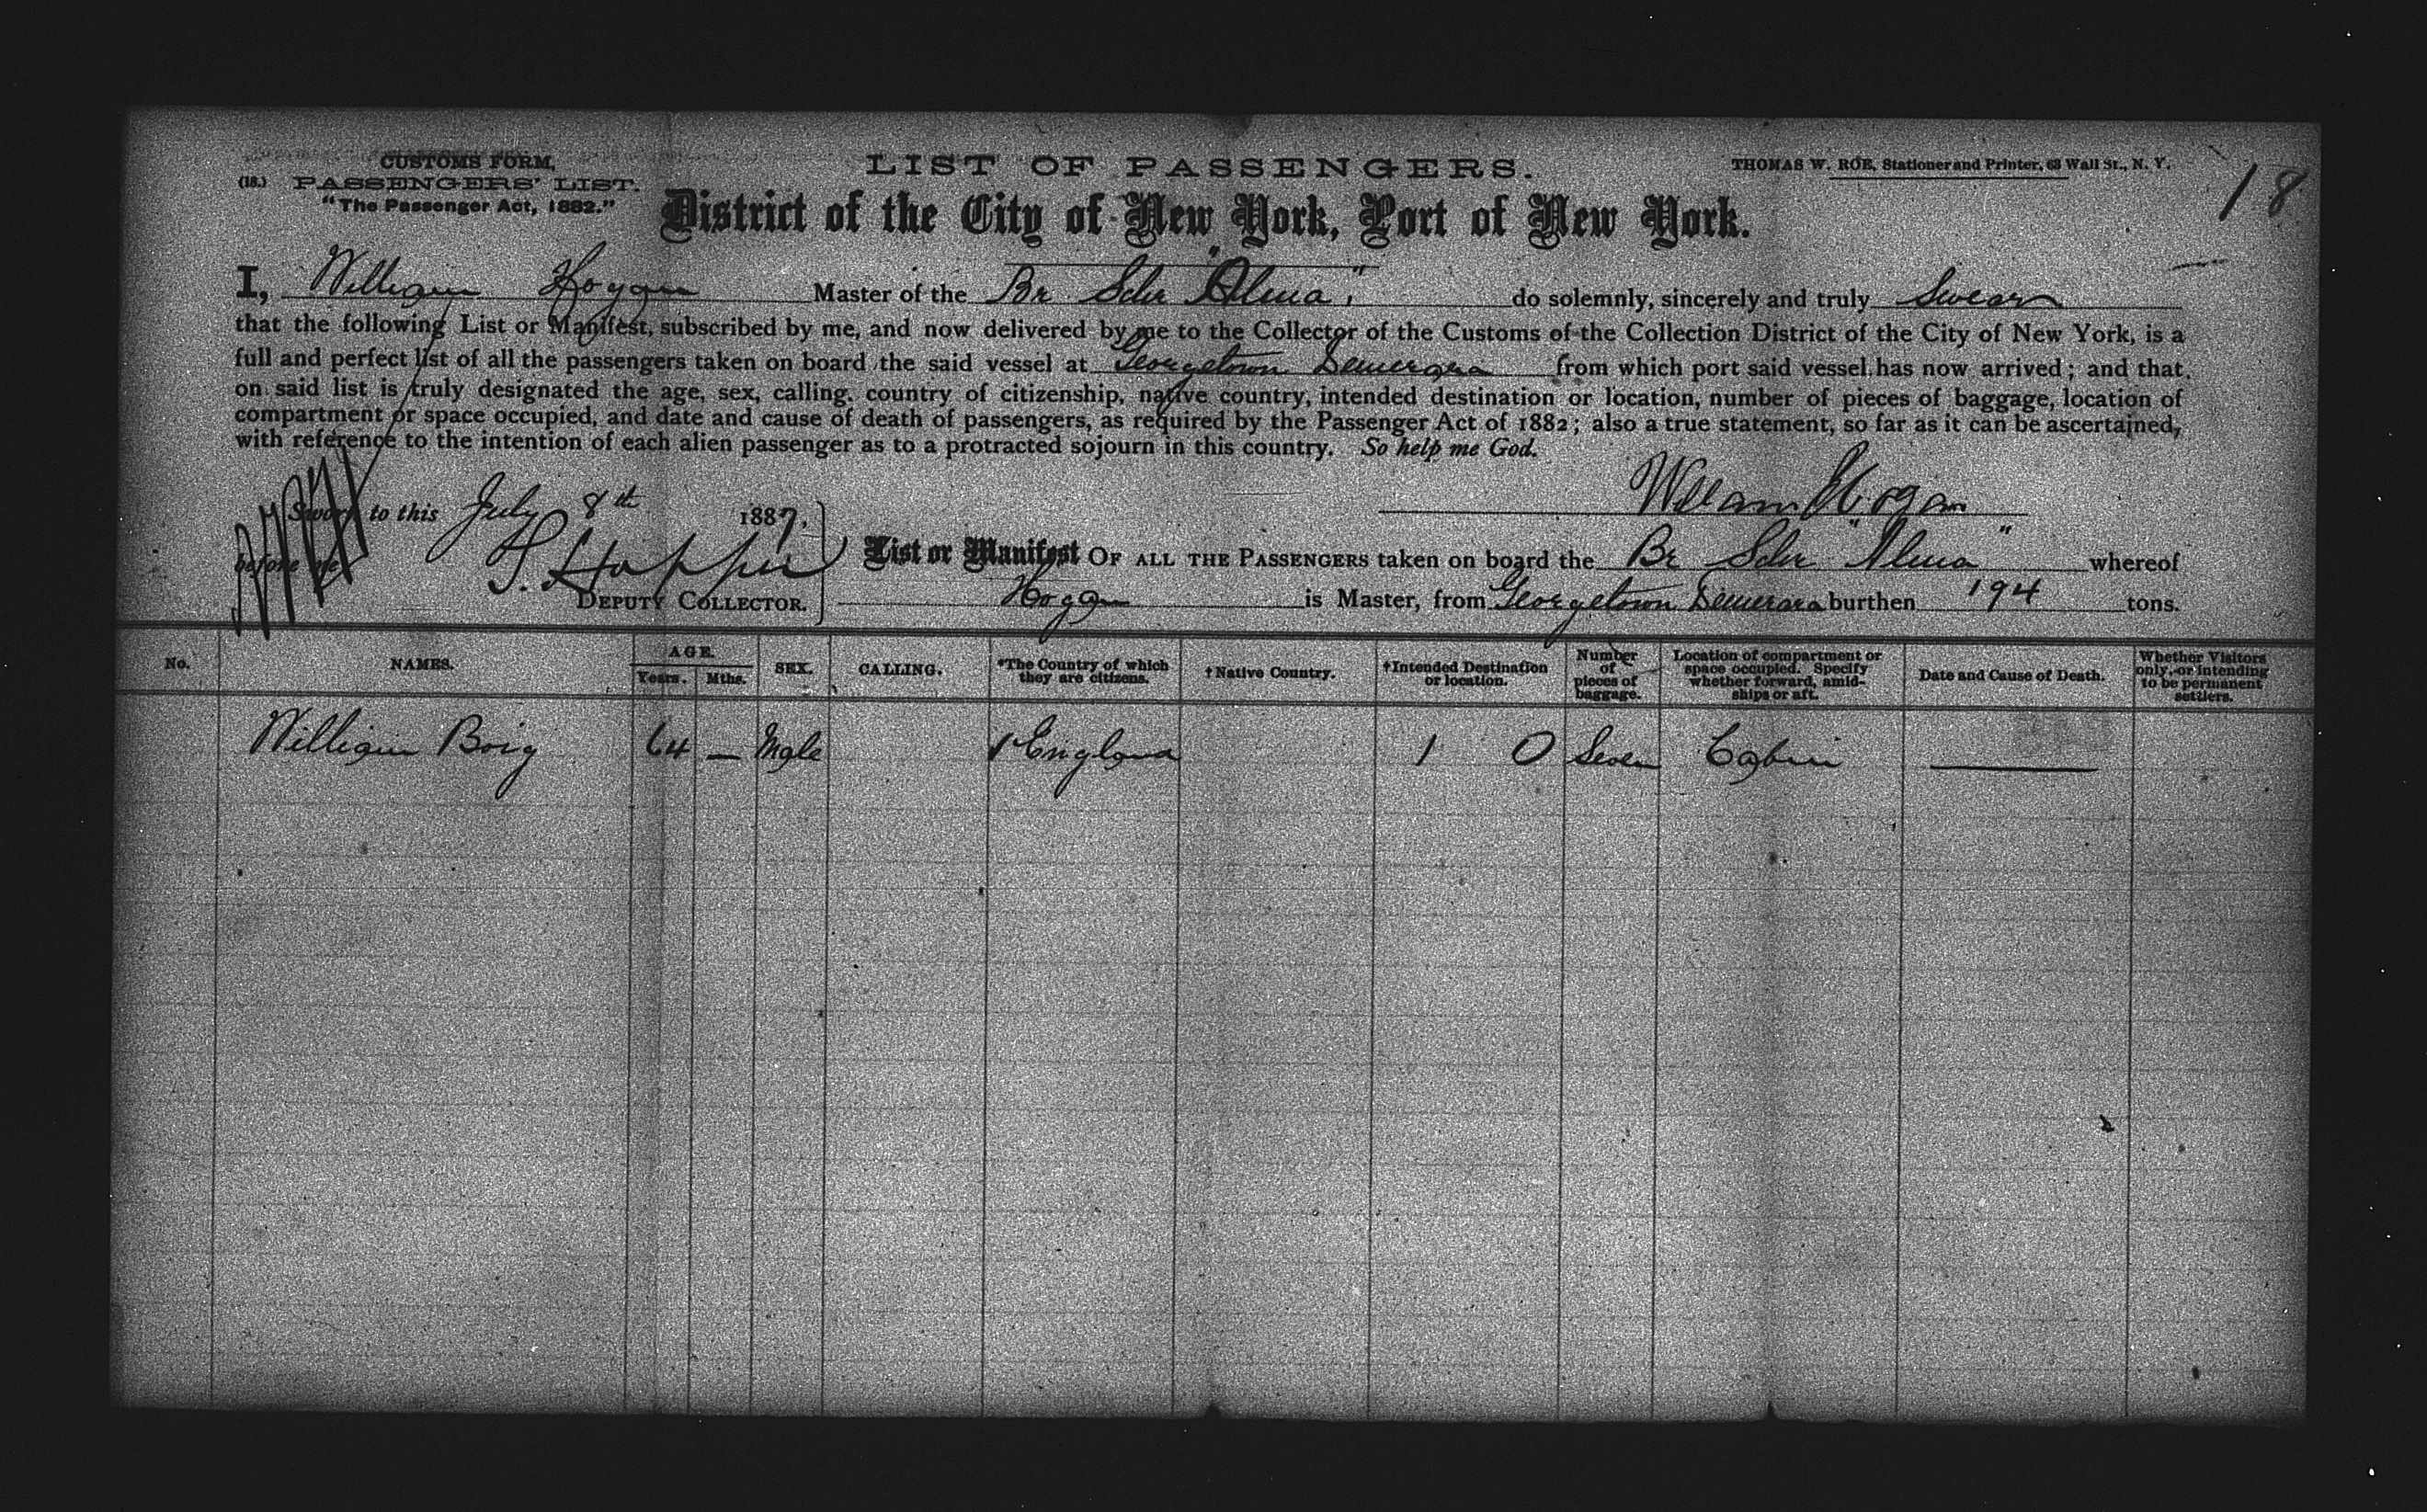 CUSTOMS FORM,
(18.) PASSENGERS' LIST.
"The Passenger Act, 1882."
LIST OF PASSENGERS.
THOMAS W. ROE, Stationer and Printer, 63 Wall St., N. Y.
18
District of the City of New York, Port of New York.
I, William Hogan Master of the Br Schr "Alma", do solemnly, sincerely and truly Swear
that the following List or Manifest, subscribed by me, and now delivered by me to the Collector of the Customs of the Collection District of the City of New York, is a
full and perfect list of all the passengers taken on board the said vessel at Georgetown Demerara from which port said vessel has now arrived; and that
on said list is truly designated the age, sex, calling, country of citizenship, native country, intended destination or location, number of pieces of baggage, location of
compartment or space occupied, and date and cause of death of passengers, as required by the Passenger Act of 1882; also a true statement, so far as it can be ascertained,
with reference to the intention of each alien passenger as to a protracted sojourn in this country. So help me God.
William Hogan
Sworn to this July 8th 1887,
before me
DEPUTY COLLECTOR.
List or Manifest OF ALL THE PASSENGERS taken on board the Br Schr "Alma" whereof
Hogan is Master, from Georgetown Demerara burthen 194 tons.
No. NAMES. AGE. Years. Mths. SEX. CALLING. *The Country of which they are citizens. †Native Country. †Intended Destination or location. Number of pieces of baggage. Location of compartment or space occupied. Specify whether forward, amidships or aft. Date and Cause of Death. Whether Visitors only, or intending to be permanent settlers.
William Boig 64 — Male England 1 0 Seven Cabin